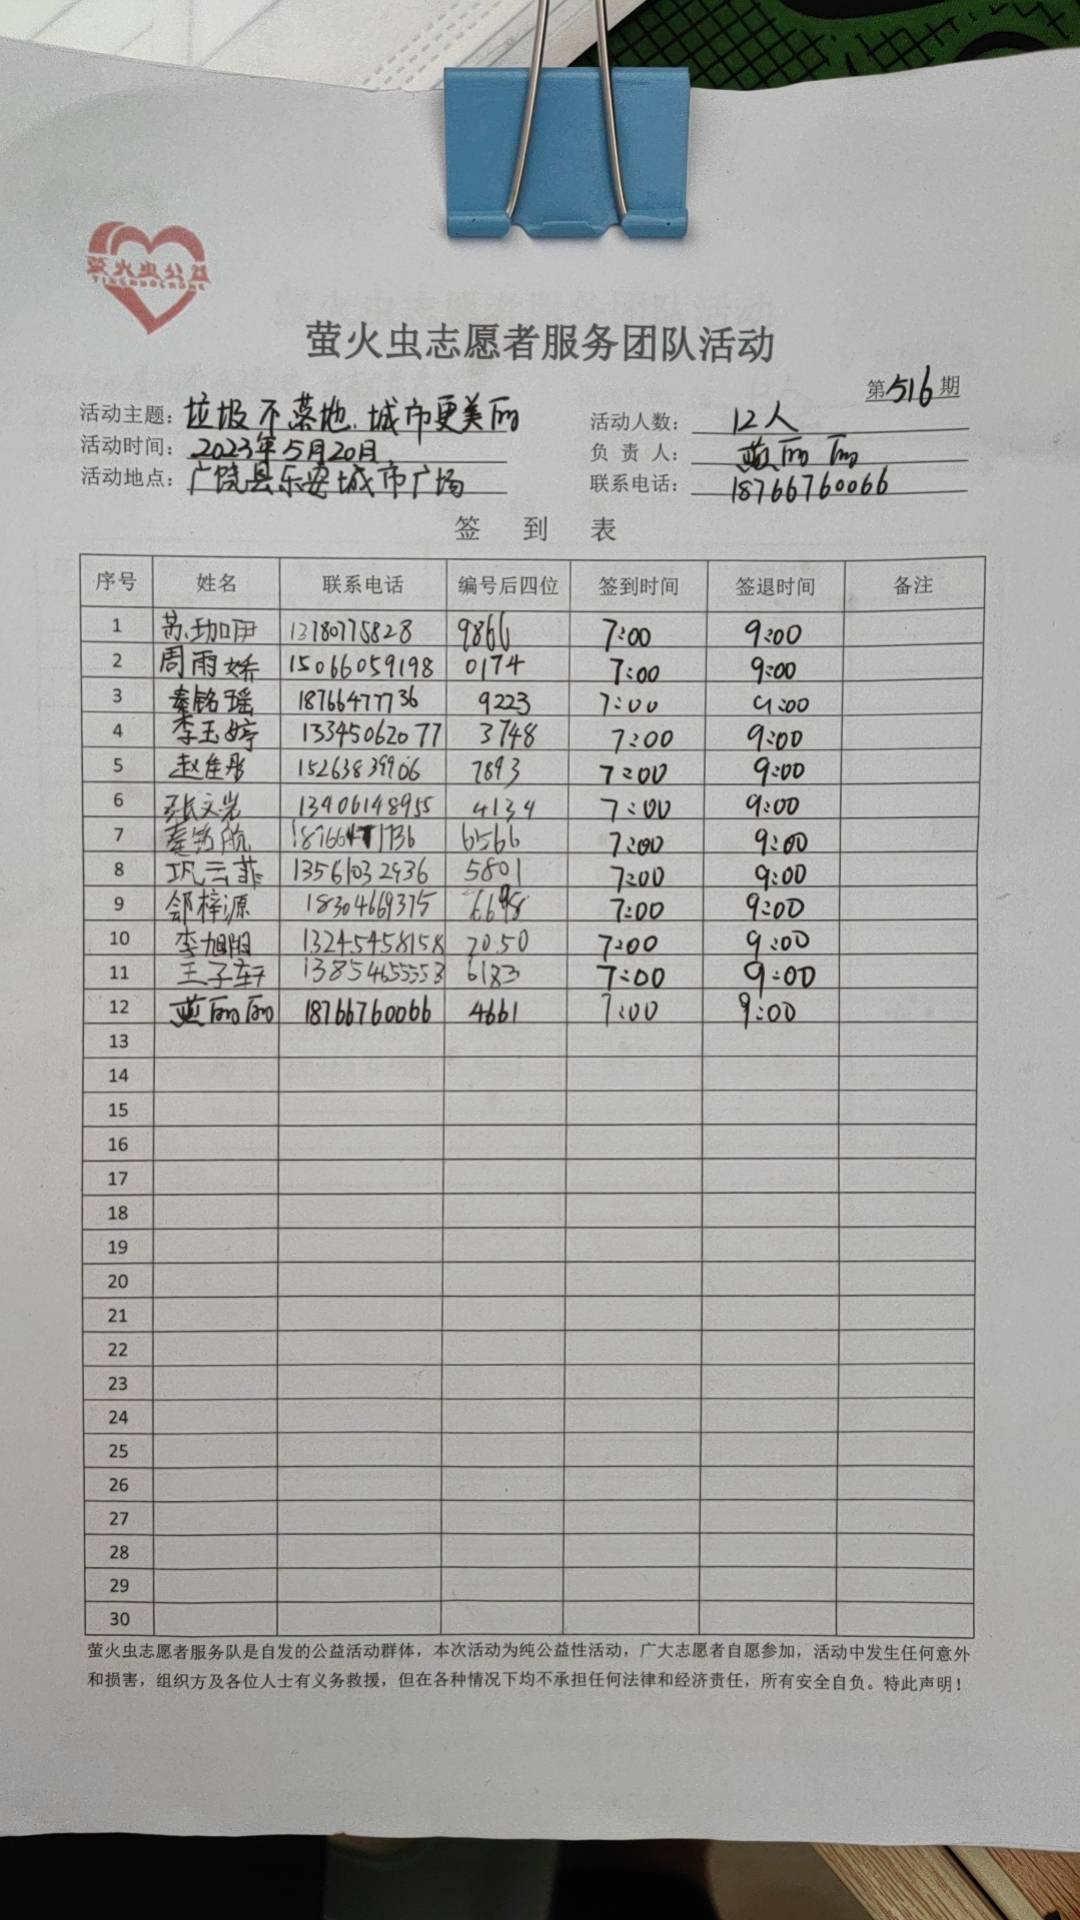 萤火虫公益
萤火虫志愿者服务团队活动
第516期
活动主题：垃圾不落地.城市更美丽 活动人数：12人
活动时间：2023年5月20日 负责人：蓝丽丽
活动地点：广饶县乐安城市广场 联系电话：18766760066
签到表
序号 姓名 联系电话 编号后四位 签到时间 签退时间 备注
1 苏珈伊 13780775828 9866 7:00 9:00
2 周雨娇 15066059198 0174 7:00 9:00
3 秦铭瑶 18766477736 9223 7:00 9:00
4 李玉婷 13345062077 3748 7:00 9:00
5 赵佳彤 15263839906 7893 7:00 9:00
6 张文岩 13406148955 4134 7:00 9:00
7 秦铭航 6566 7:00 9:00
8 巩云菲 13561032936 5801 7:00 9:00
9 邹梓源 18304669375 6698 7:00 9:00
10 李旭阳 13245458158 7050 7:00 9:00
11 王子轩 13854655553 6183 7:00 9:00
12 蓝丽丽 18766760066 4661 7:00 9:00
13
14
15
16
17
18
19
20
21
22
23
24
25
26
27
28
29
30
萤火虫志愿者服务队是自发的公益活动群体，本次活动为纯公益性活动，广大志愿者自愿参加，活动中发生任何意外
和损害，组织方及各位人士有义务救援，但在各种情况下均不承担任何法律和经济责任，所有安全自负。特此声明！